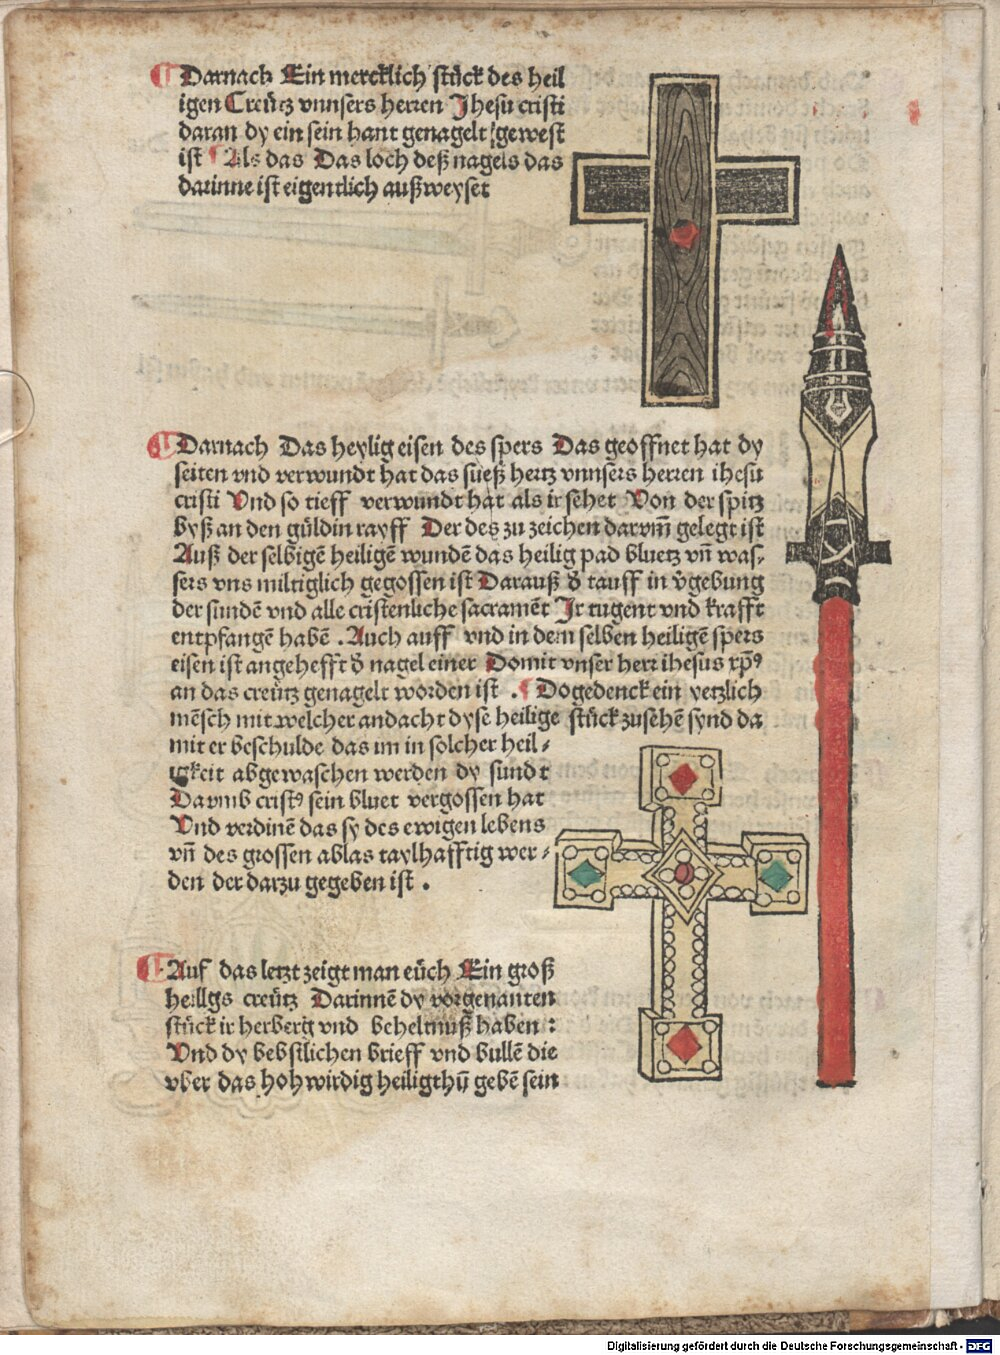 Darnach Ein mercklich stück des heil
igen Creütz vnnsers herren Jhesu cristi
daran dy ein sein hant genagelt gewest
ist Als das Das loch deß nagels das
darinne ist eigentlich außweyset
Darnach Das heylig eisen des spers Das geoffnet hat dy
seiten vnd verwundt hat das süeß hertz vnnsers herren ihesu
cristi Vnd so tieff verwundt hat als ir sehet Von der spitz
byß an den güldin rayff Der des zu zeichen darvm̄ gelegt ist
Auß der selbigē heiligē wundē das heilig pad bluetz vn̄ was⸗
sers vns miltiglich gegossen ist Darauß d̓ tauff in v̓gebung
der sundē vnd alle cristenliche sacramēt Jr tugent vnd krafft
entpfangē habē . Auch auff vnd in dem selben heiligē spers
eisen ist angehefft d̓ nagel einer Domit vnser herr ihesus xp̄ꝰ
an das creütz genagelt worden ist . Dogedenck ein yetzlich
mēsch mit welcher andacht dyse heilige stück zusehē synd da
mit er beschulde das im in solcher heil⸗
igkeit abgewaschen werden dy sund t
Darumb cristꝰ sein bluet vergossen hat
Vnd verdinē das sy des ewigen lebens
vn̄ des grossen ablas taylhafftig wer⸗
den der darzu gegeben ist .
Auf das letzt zeigt man eüch Ein groß
heillgs creütz Darinnē dy vorgenanten
stück ir herberg vnd beheltnuß haben :
Vnd dy bebstlichen brieff vnd bullē die
vber das hohwirdig heiligthū gebē sein
Digitalisierung gefördert durch die Deutsche Forschungsgemeinschaft - DFG